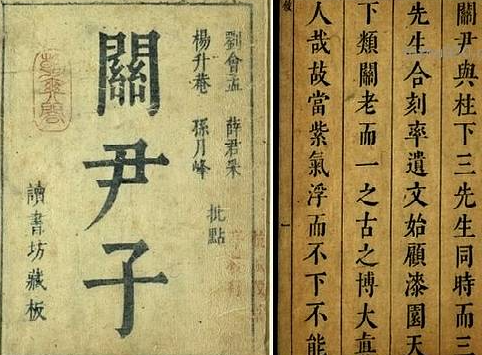 劉會孟 薛君采
楊升菴 孫月峰
批點
關尹子
讀書坊藏板
關尹與柱下三先生同時而三
先生合刻率遺文始顧漆園天
下類關老而一之古之博大真
人哉故當紫氣浮而不下不能